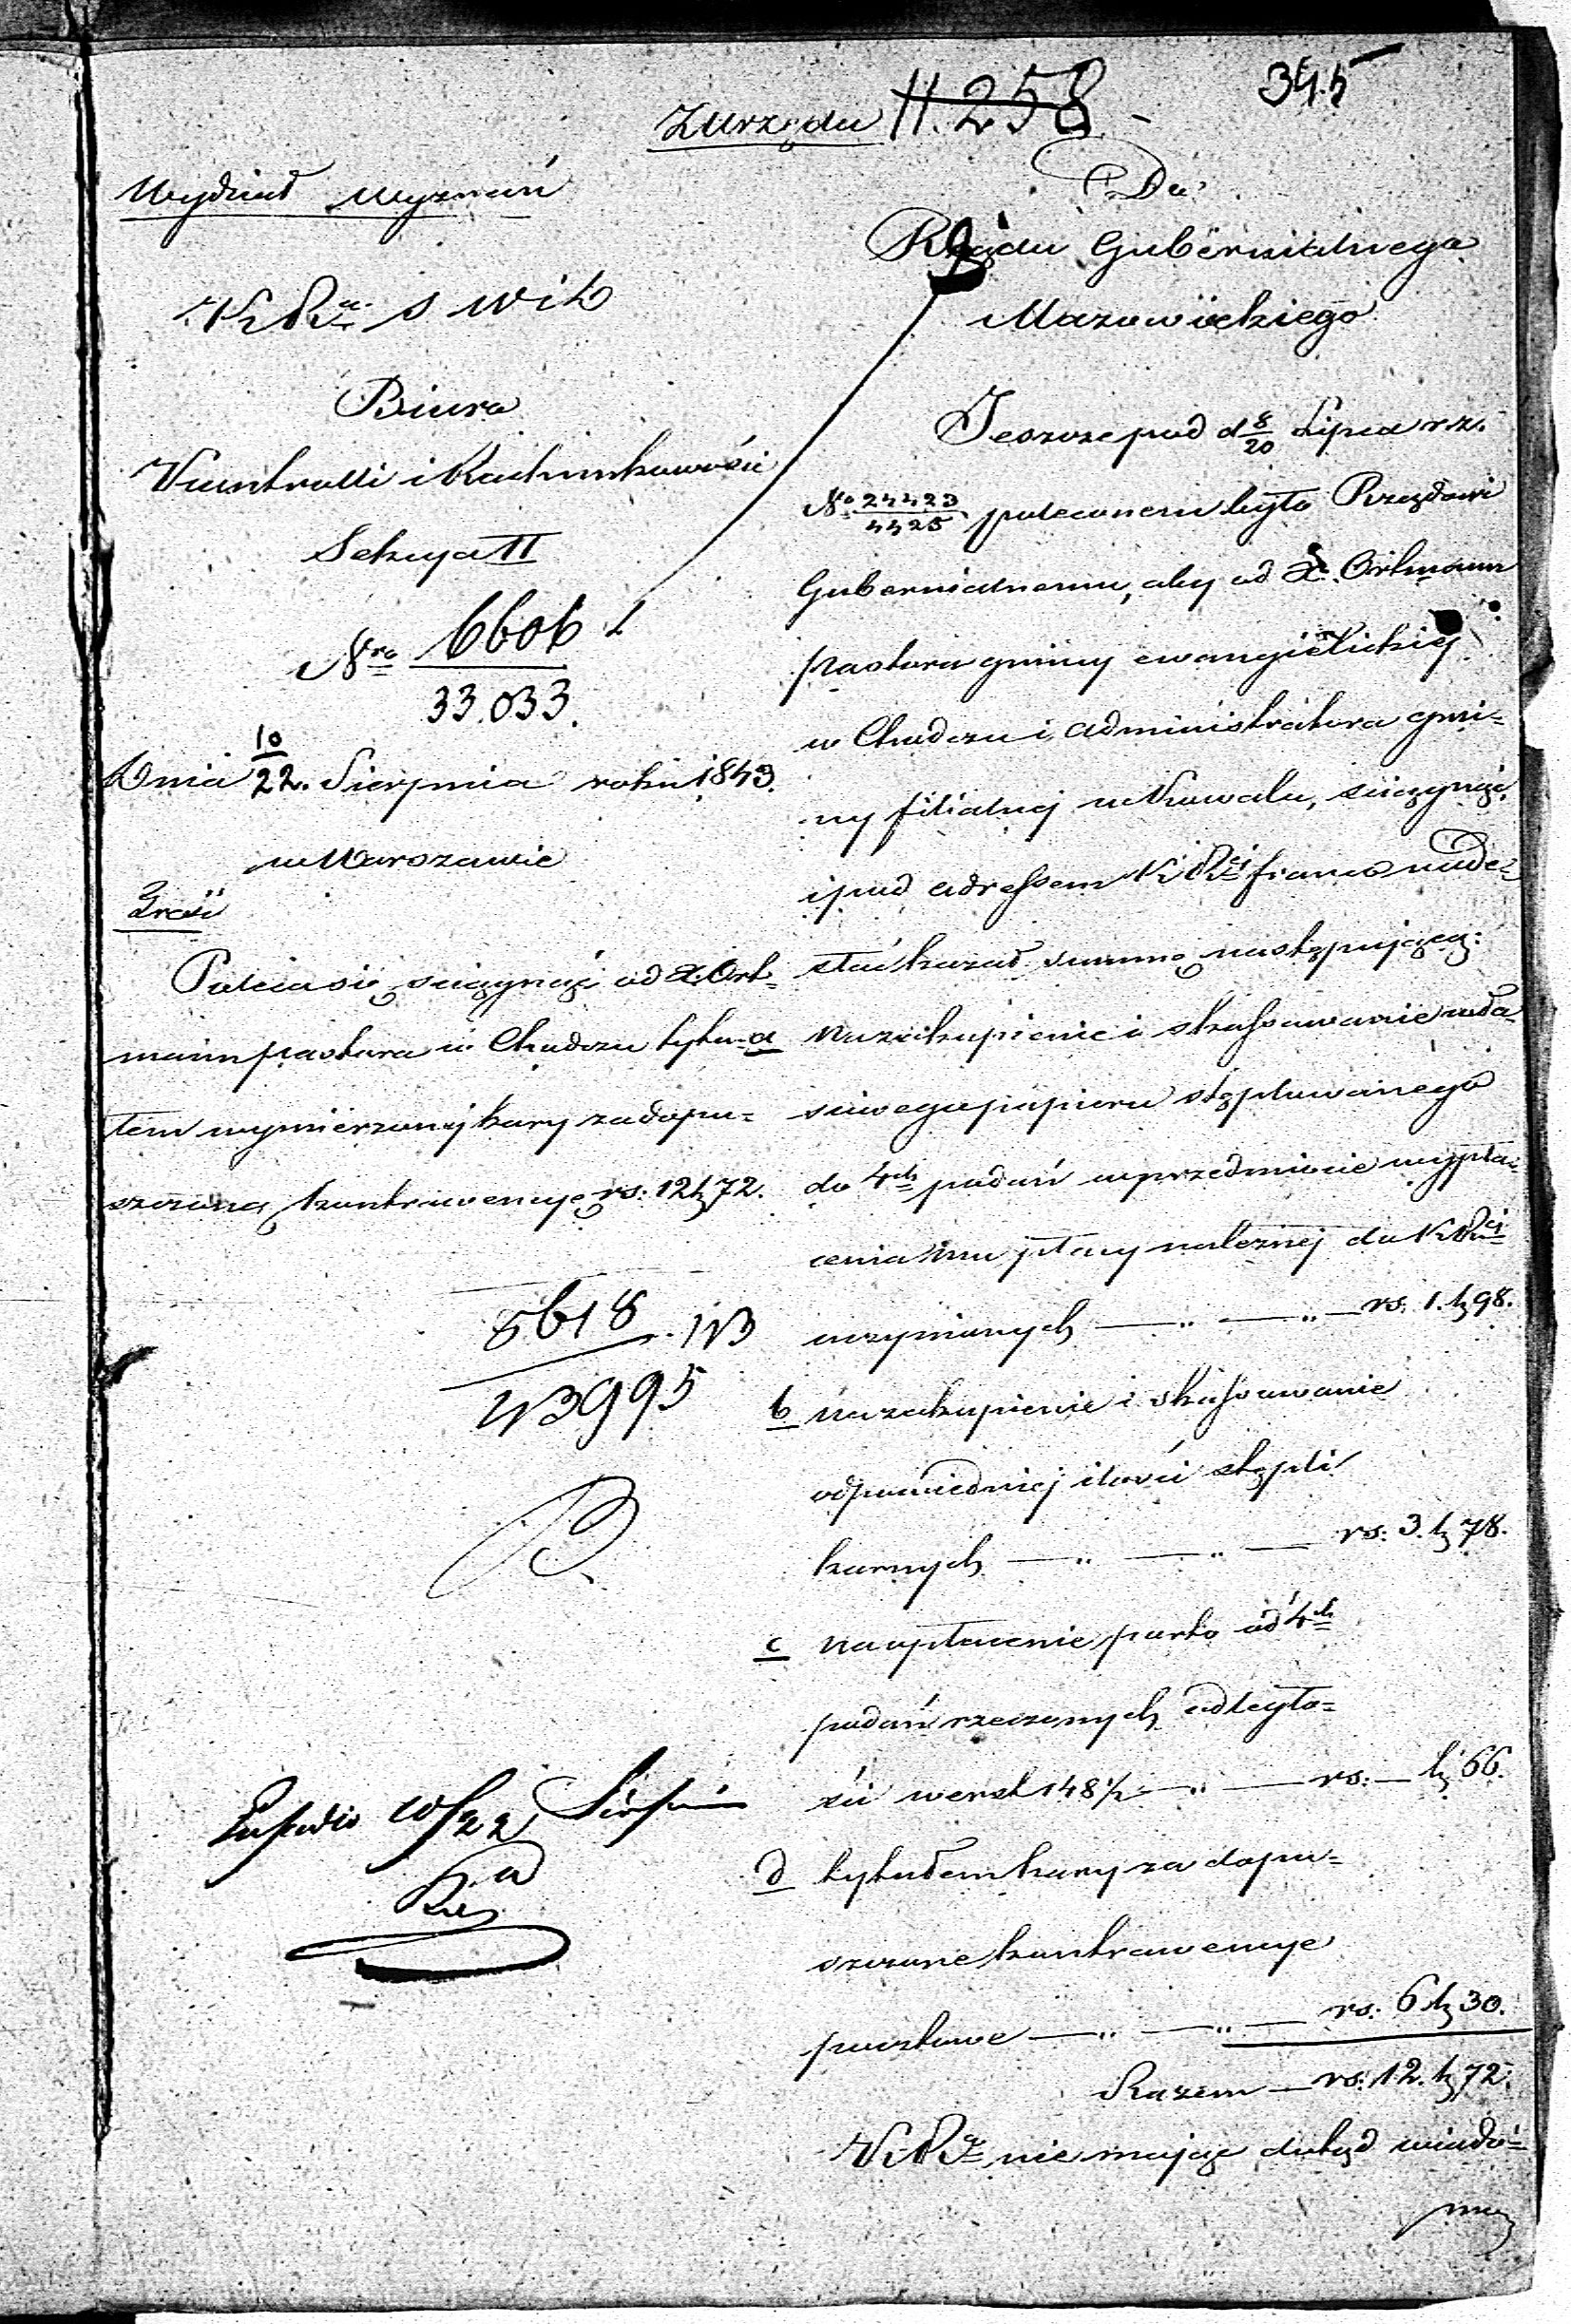 345
Z urzędu 11.258
Wydział Wyznań
K. R. S. W. i D.
Biuro
Kontrolli i Rachunkowości
Sekcya II
Nro 6606/33.033.
Dnia 10/22. Sierpnia roku 1843.
w Warszawie
Treść
Poleca się ściągnąć od X. Ort=
mann pastora w Chodczu tytu=
łem wymierzonej kary za dopu=
szczoną kontrawencyę rs: 12 k 72.
43995
10/22 Sierpnia
Do
Rządu Gubernialnego
Mazowieckiego
Jeszcze pod d 8/20 Lipca r. z.
No 24423/4425 poleconem było Rządowi
Gubernialnemu, aby od X. Ortmann
pastora gminy ewangielickiej
w Chodczu i administratora gmi=
ny filialnej w Kowalu, ściągnąć
i pod adressem K. R. franco nade=
słać kazał summę następującą:
a na zakupienie i skassowanie wła=
ściwego papieru stęplowanego
do 4ch podań w przedmiocie wypła=
cenia mu płacy należnej do K. R.
uczynionych — „ — „ — rs: 1. k 98.
b na zakupienie i skassowanie
odpowiedniej ilości stępli
karnych — „ — „ — rs: 3. k 78.
c na opłacenie porto od 4ch
podań rzeczonych odległo=
ści werst 148 1/2 — „ — rs: — k 66.
d tytułem kary za dopu=
szczone kontrawencye
pocztowe — „ — „ — rs: 6 k 30.
Razem — rs: 12. k 72.
K. R. nie mając dotąd wiado=
mo